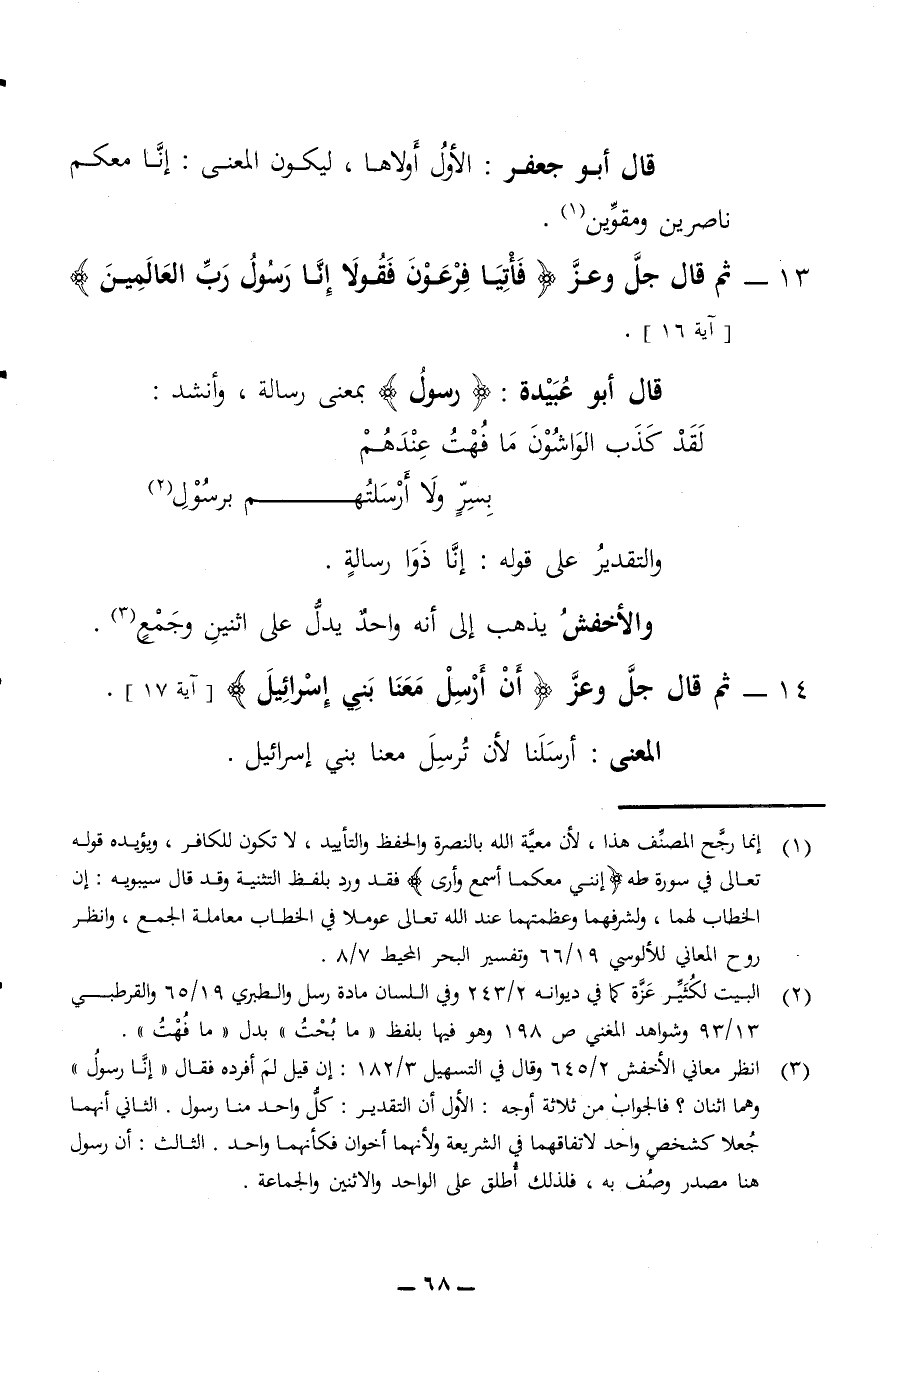 قال أبو جعفر : الأولُ أَولاها ، ليكون المعنى : إنَّا معكم
ناصرين ومقوِّين(١) .
١٣ — ثم قال جلَّ وعزَّ ﴿ فَأْتِيَا فِرْعَوْنَ فَقُولَا إِنَّا رَسُولُ رَبِّ العَالَمِينَ ﴾
[ آية ١٦ ] .
قال أبو عُبَيْدة : ﴿ رسولُ ﴾ بمعنى رسالة ، وأنشد :
لَقَدْ كَذَب الوَاشُوْنَ مَا فُهْتُ عِنْدَهُمْ
بِسِرٍّ ولَا أَرْسَلتُهم برسُوْلِ(٢)
والتقديرُ على قوله : إنَّا ذَوَا رسالةٍ .
والأخفشُ يذهب إلى أنه واحدٌ يدلُّ على اثنينِ وجَمْعٍ(٣) .
١٤ — ثم قال جلَّ وعزَّ ﴿ أَنْ أَرْسِلْ مَعَنَا بَنِي إِسْرائِيلَ ﴾ [ آية ١٧ ] .
المعنى : أرسَلَنا لأن تُرسِلَ معنا بني إسرائيل .
(١) إنما رجَّح المصنِّف هذا ، لأن معيَّة الله بالنصرة والحفظ والتأييد ، لا تكون للكافر ، ويؤيده قوله
تعالى في سورة طه ﴿ إنني معكما أسمع وأرى ﴾ فقد ورد بلفظ التثنية وقد قال سيبويه : إن
الخطاب لهما ، ولشرفهما وعظمتهما عند الله تعالى عوملا في الخطاب معاملة الجمع ، وانظر
روح المعاني للألوسي ٦٦/١٩ وتفسير البحر المحيط ٨/٧ .
(٢) البيت لكُثَيِّر عَزَّة كما في ديوانه ٢٤٣/٢ وفي اللسان مادة رسل والطبري ٦٥/١٩ والقرطبي
٩٣/١٣ وشواهد المغني ص ١٩٨ وهو فيها بلفظ « ما بُحْتُ » بدل « ما فُهْتُ » .
(٣) انظر معاني الأخفش ٦٤٥/٢ وقال في التسهيل ١٨٢/٣ : إن قيل لمَ أفرده فقال « إنَّا رسولُ »
وهما اثنان ؟ فالجوابُ من ثلاثة أوجه : الأول أن التقدير : كلُّ واحد منا رسول . الثاني أنهما
جُعلا كشخصٍ واحد لاتفاقهما في الشريعة ولأنهما أخوان فكأنهما واحد . الثالث : أن رسول
هنا مصدر وصُف به ، فلذلك أُطلق على الواحد والاثنين والجماعة .
— ٦٨ —